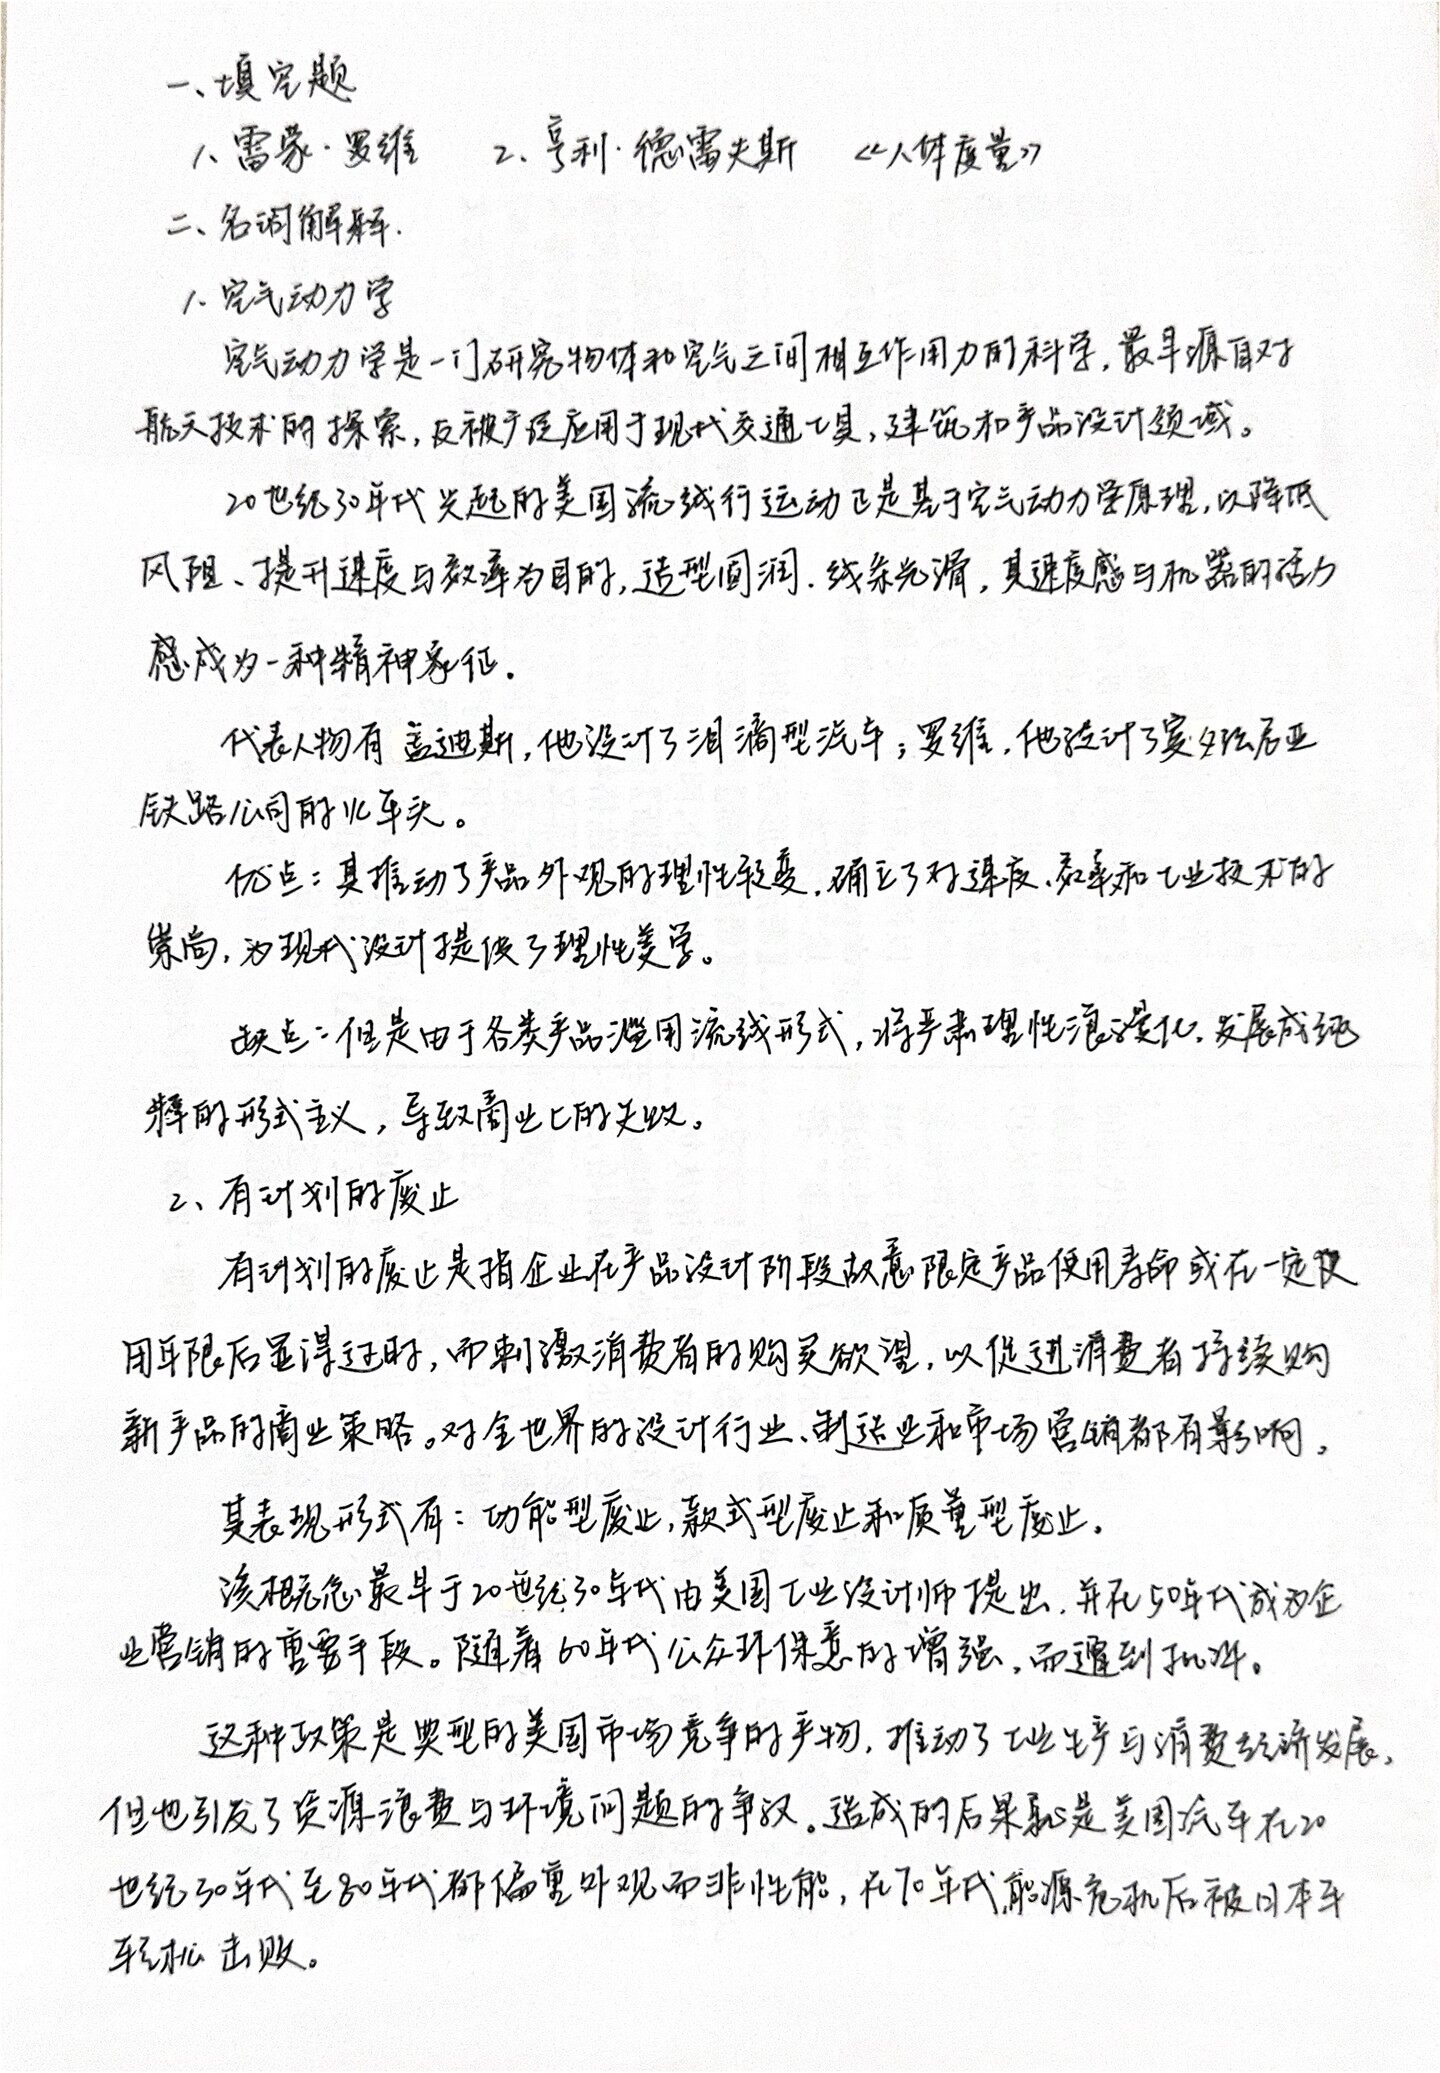 一、填空题
1、雷蒙·罗维 2、亨利·德雷夫斯 《人体度量》
二、名词解释.
1、空气动力学
空气动力学是一门研究物体和空气之间相互作用力的科学，最早源自对
航天技术的探索，反被广泛应用于现代交通工具，建筑和产品设计领域。
20世纪30年代兴起的美国流线行运动正是基于空气动力学原理，以降低
风阻、提升速度与效率为目的，造型圆润、线条光滑，其速度感与机器的活力
感成为一种精神象征．
代表人物有盖迪斯，他设计了泪滴型汽车；罗维，他设计了宾夕法尼亚
铁路公司的火车头。
优点：其推动了产品外观的理性转变，确立了对速度、效率和工业技术的
崇尚，为现代设计提供了理性美学。
缺点：但是由于各类产品滥用流线形式，将严肃理性浪漫化，发展成纯
粹的形式主义，导致商业上的失败。
2、有计划的废止
有计划的废止是指企业在产品设计阶段故意限定产品使用寿命或在一定使
用年限后显得过时，而刺激消费者的购买欲望，以促进消费者持续购
新产品的商业策略。对全世界的设计行业、制造业和市场营销都有影响。
其表现形式有：功能型废止，款式型废止和质量型废止。
该概念最早于20世纪30年代由美国工业设计师提出，并在50年代成为企
业营销的重要手段。随着60年代公众环保意的增强，而遭到批评。
这种政策是典型的美国市场竞争的产物，推动了工业生产与消费经济发展，
但也引发了资源浪费与环境问题的争议。造成的后果就是美国汽车在20
世纪30年代至80年代都偏重外观而非性能，在70年代能源危机后被日本车
轻松击败。